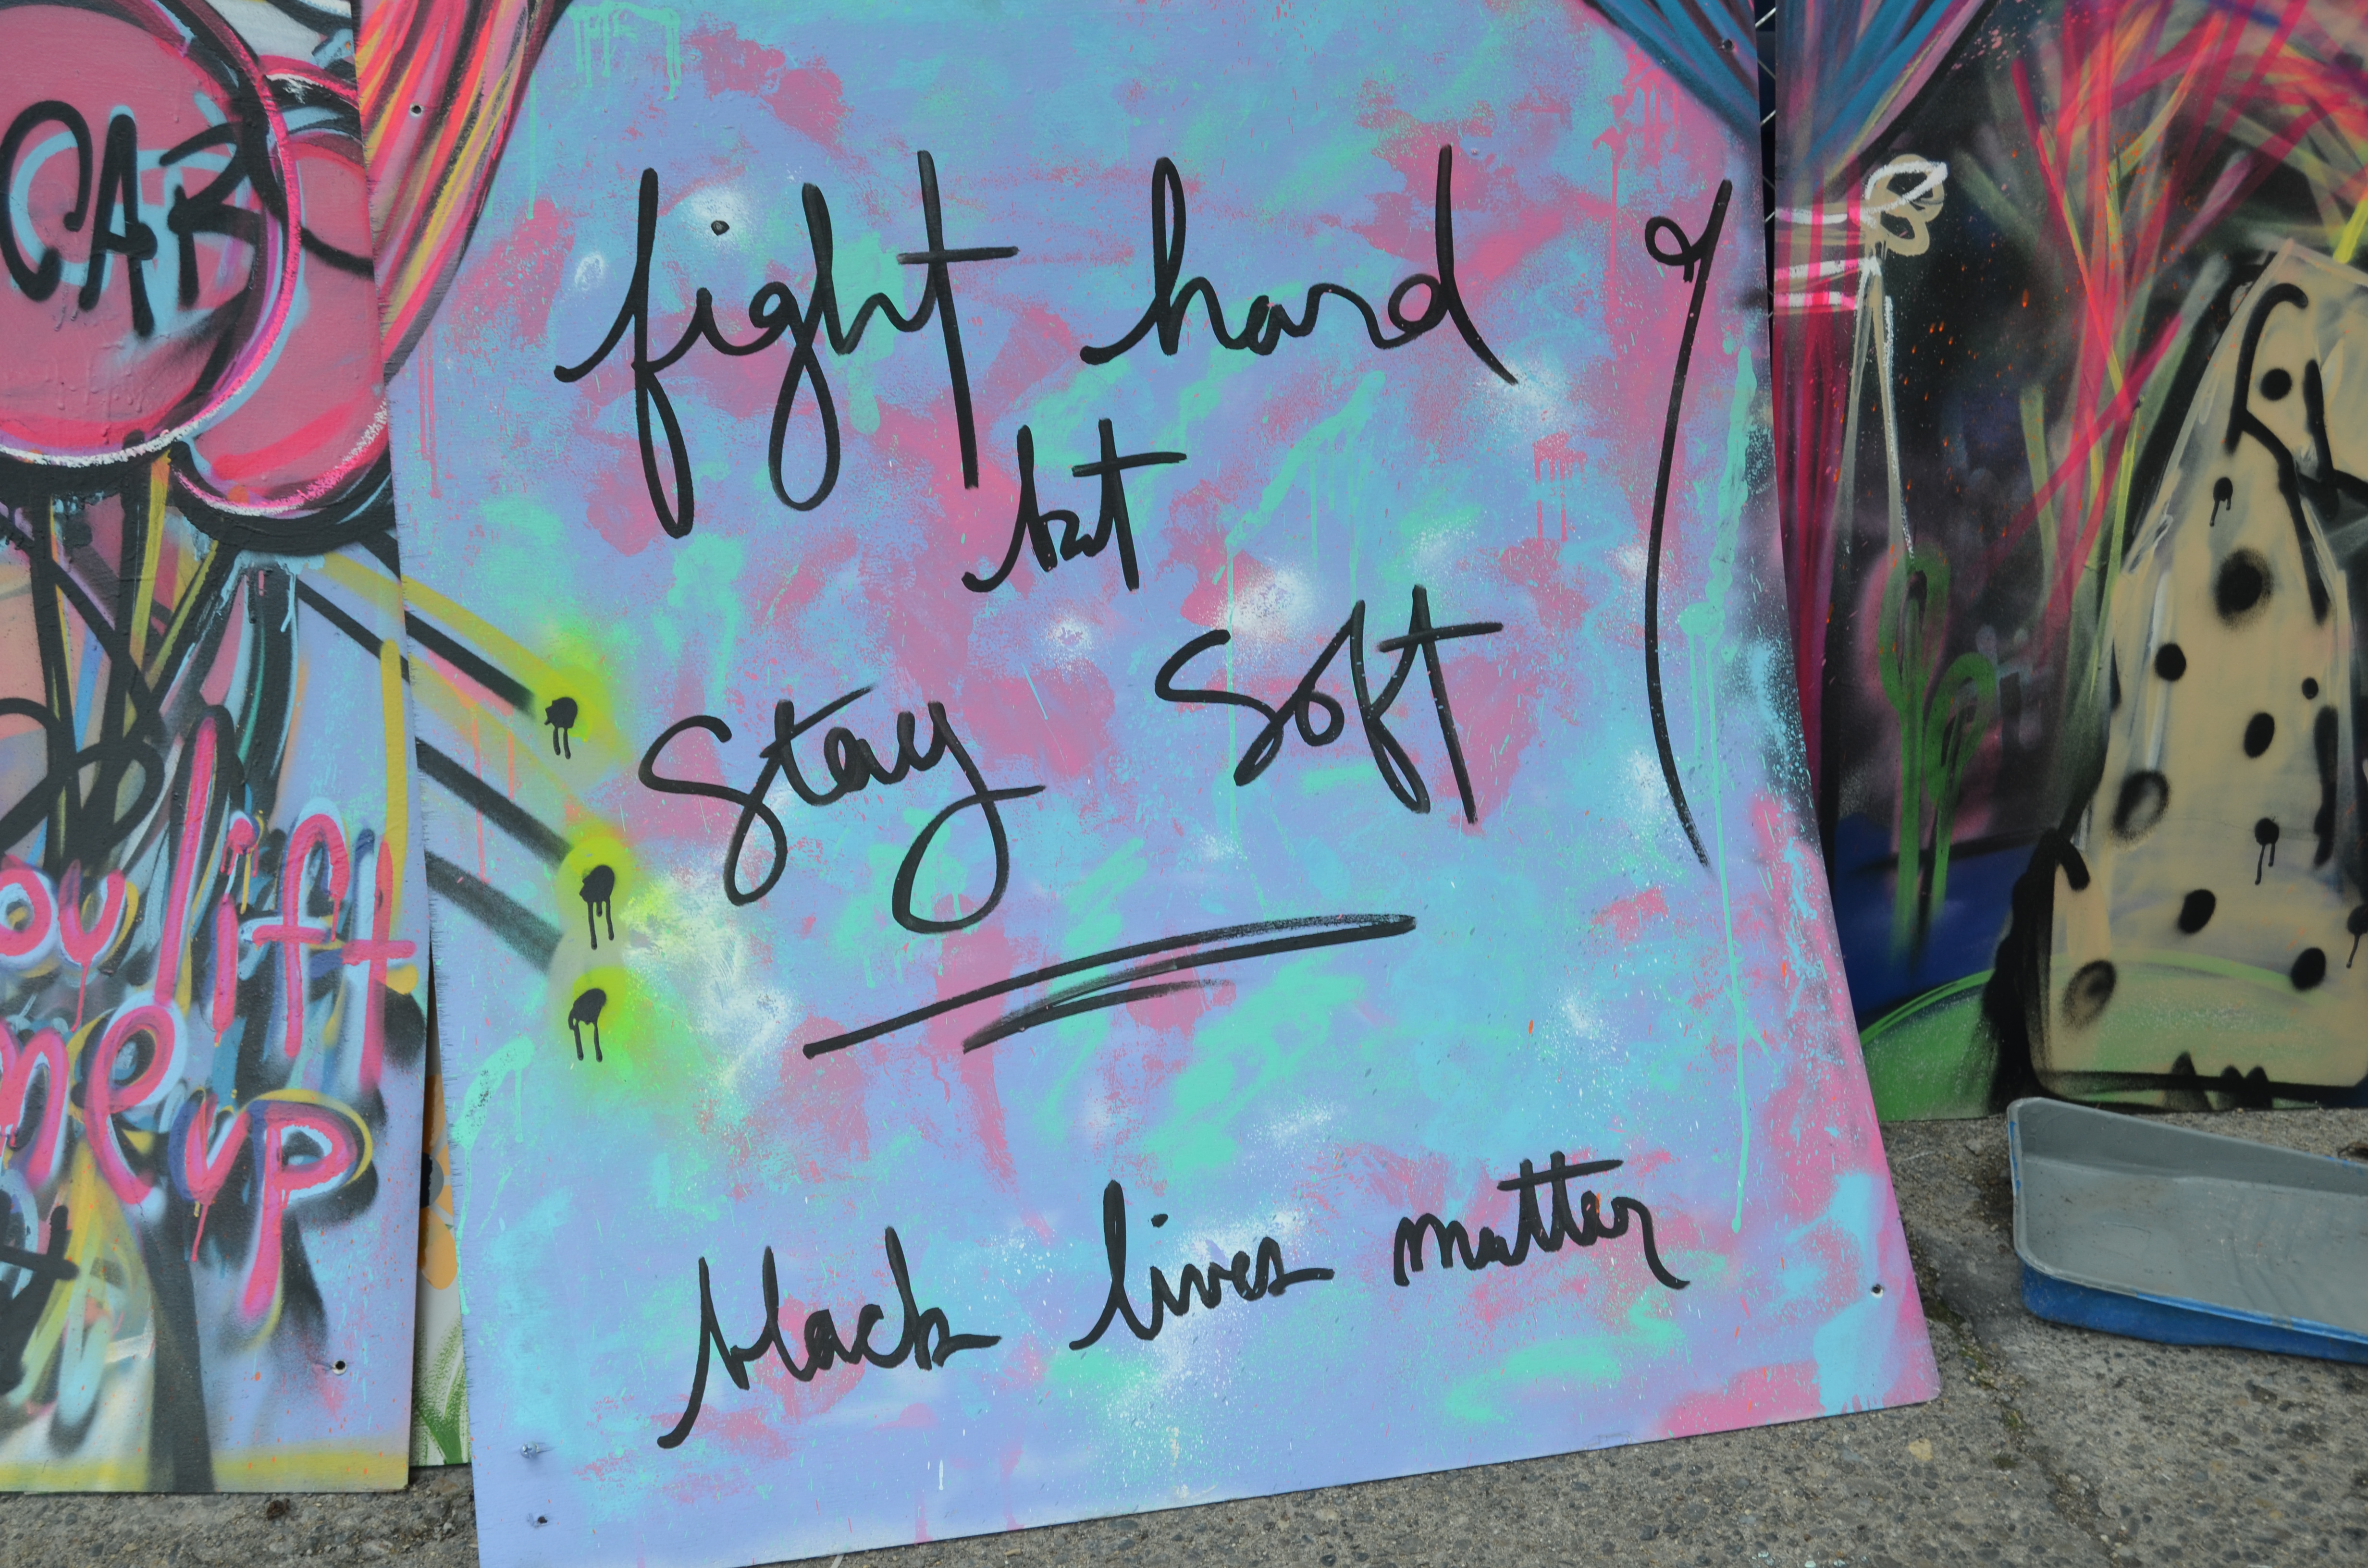 CAR
ou lift
me up
fight hard
but
stay soft
black lives matter